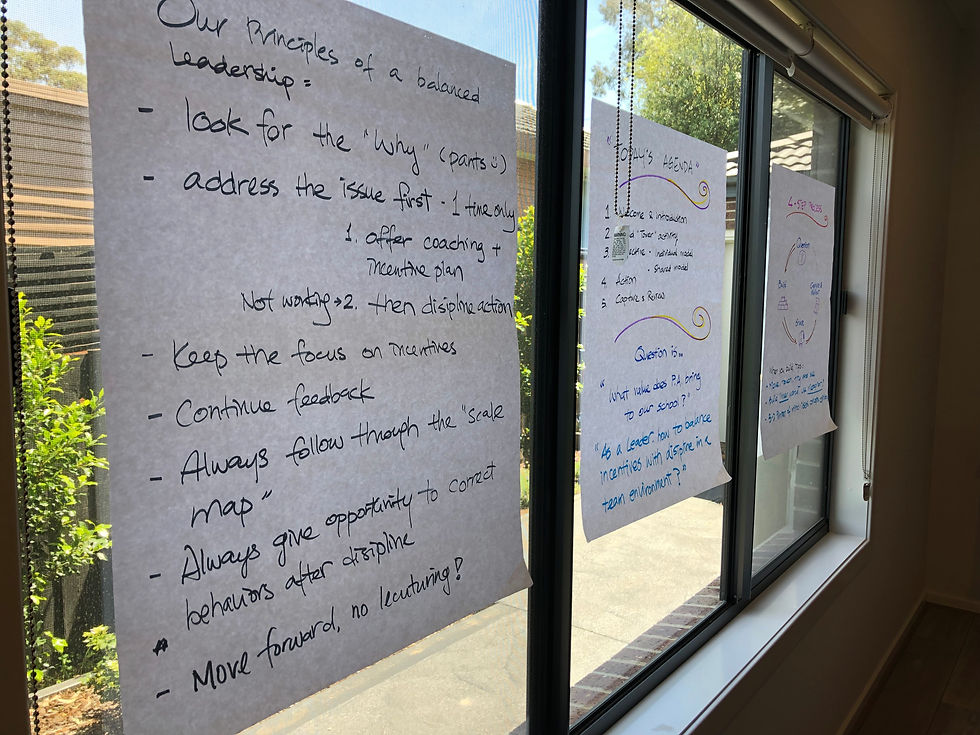 Our Principles of a balanced
Leadership =
- look for the "Why" (pants ☺)
- address the issue first - 1 time only
1. offer coaching +
incentive plan
Not working → 2. then disipline action
- Keep the focus on incentives
- Continue feedback
- Always follow through the "scale
map"
- Always give opportunity to correct
behaviors after disipline
- Move forward, no lecuturing!
"TODAY'S AGENDA"
1 Welcome & Introduction
2 "Tower" activity
3. - individual model
- shared model
4 Action
5 Capture & Review
Question is...
"What value does P.A. bring
to our school?"
"As a Leader, how to balance
incentives with disipline in a
team environment?"
4-STEP PROCESS
Question
1
Build
Share